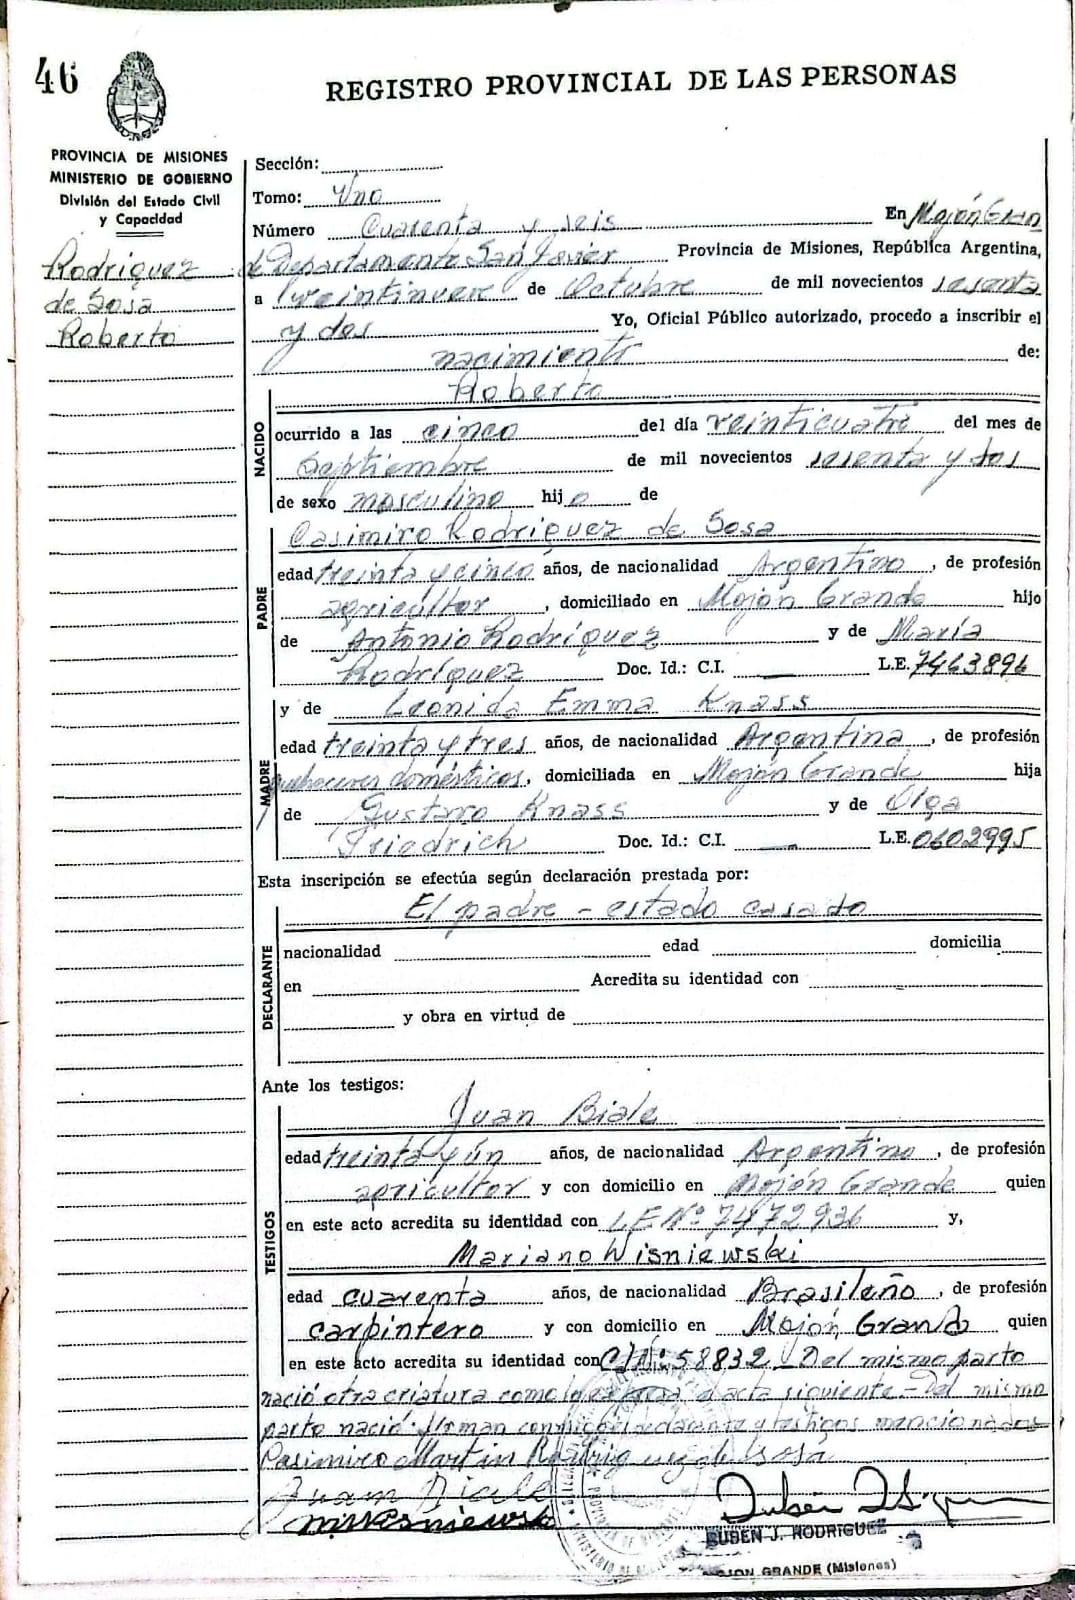 46
REGISTRO PROVINCIAL DE LAS PERSONAS
PROVINCIA DE MISIONES
MINISTERIO DE GOBIERNO
División del Estado Civil
y Capacidad
Rodriguez
de Sosa
Roberto
Sección:
Tomo: Uno
Número Cuarenta y seis En Mojón Gran
de Departamento San Javier Provincia de Misiones, República Argentina,
a veintinueve de Octubre de mil novecientos sesenta
y dos Yo, Oficial Público autorizado, procedo a inscribir el
nacimiento de:
Roberto
NACIDO
ocurrido a las cinco del día veinticuatro del mes de
Septiembre de mil novecientos sesenta y dos
de sexo masculino hijo de
PADRE
Casimiro Rodriguez de Sosa
edad treinta y cinco años, de nacionalidad Argentino, de profesión
agricultor, domiciliado en Mojón Grande hijo
de Antonio Rodríguez y de María
Rodríguez Doc. Id.: C.I. — L.E. 7463896
MADRE
y de Leonida Emma Knass
edad treinta y tres años, de nacionalidad Argentina, de profesión
quehaceres domésticos, domiciliada en Mojón Grande hija
de Gustavo Knass y de Olga
Friedrich Doc. Id.: C.I. — L.E. 0602995
Esta inscripción se efectúa según declaración prestada por:
DECLARANTE
El padre - estado casado
nacionalidad edad domicilia
en Acredita su identidad con
y obra en virtud de
Ante los testigos:
TESTIGOS
Juan Biale
edad treinta y ún años, de nacionalidad Argentino, de profesión
agricultor y con domicilio en Mojón Grande quien
en este acto acredita su identidad con LE Nº 7472936 y,
Mariano Wisniewski
edad cuarenta años, de nacionalidad Brasileño, de profesión
carpintero y con domicilio en Mojón Grande quien
en este acto acredita su identidad con 58832 - Del mismo parto
nació otra criatura como lo expresa el acta siguiente - Del mismo
parto nació. firman conmigo declarante y testigos mencionados
Casimiro Martin Rodriguez de Sosa
Juan Biale
RUBEN J. RODRIGUEZ
MOJON GRANDE (Misiones)